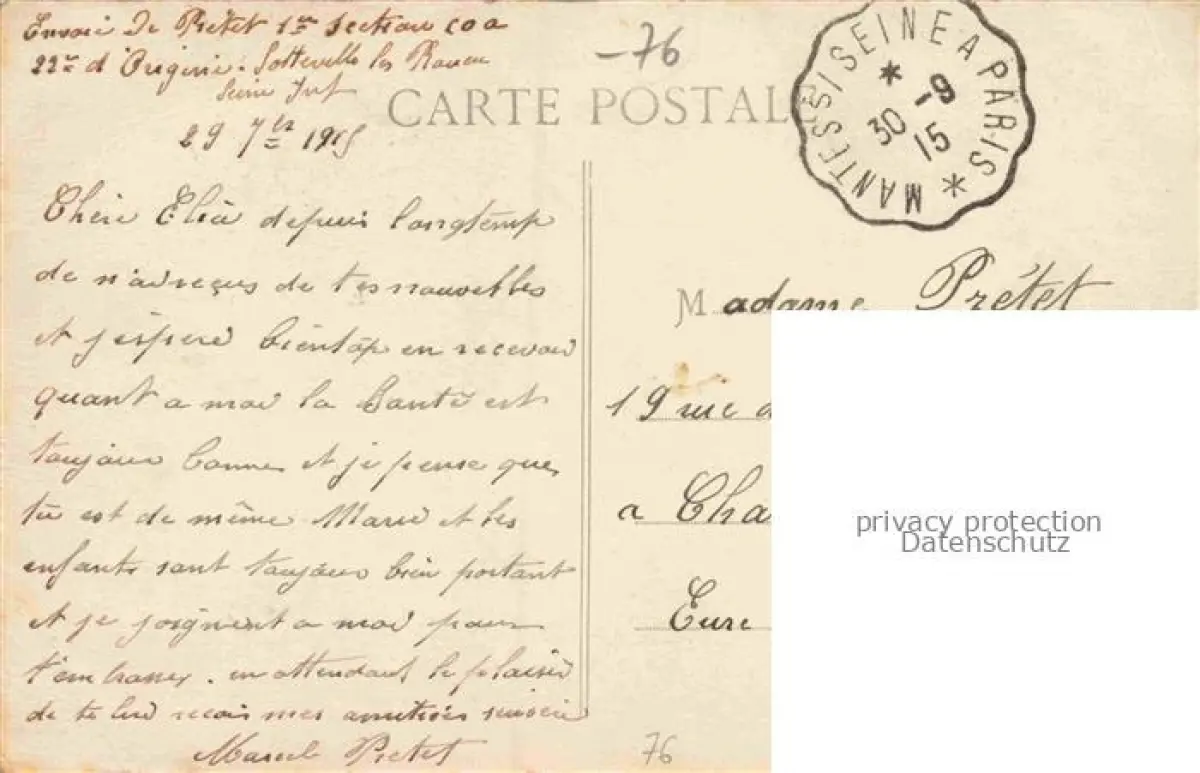 Envoi De Prétet 1re Section COA
22me d'Origine. Sotteville les Rouen
Seine Inf
29 7bre 1915
-76
CARTE POSTALE
MANTES S/SEINE A PARIS
30 -9
15
Chère Eliα depuis longtemp
de n'avoir reçus de tes nouvelles
et j'éspere bientôp en recevoir
quant a moi la Santé est
toujour bonne et je pense que
tu est de même Marie et les
enfants sont toujour bien portant
et se joignent a moi pour
t'embrasser. en attendant le plaisir
de te lire recois mes amitiés sincère
Marcel Pretet
Madame Prétet
19 rue d
a Cha
Eure
privacy protection
Datenschutz
76